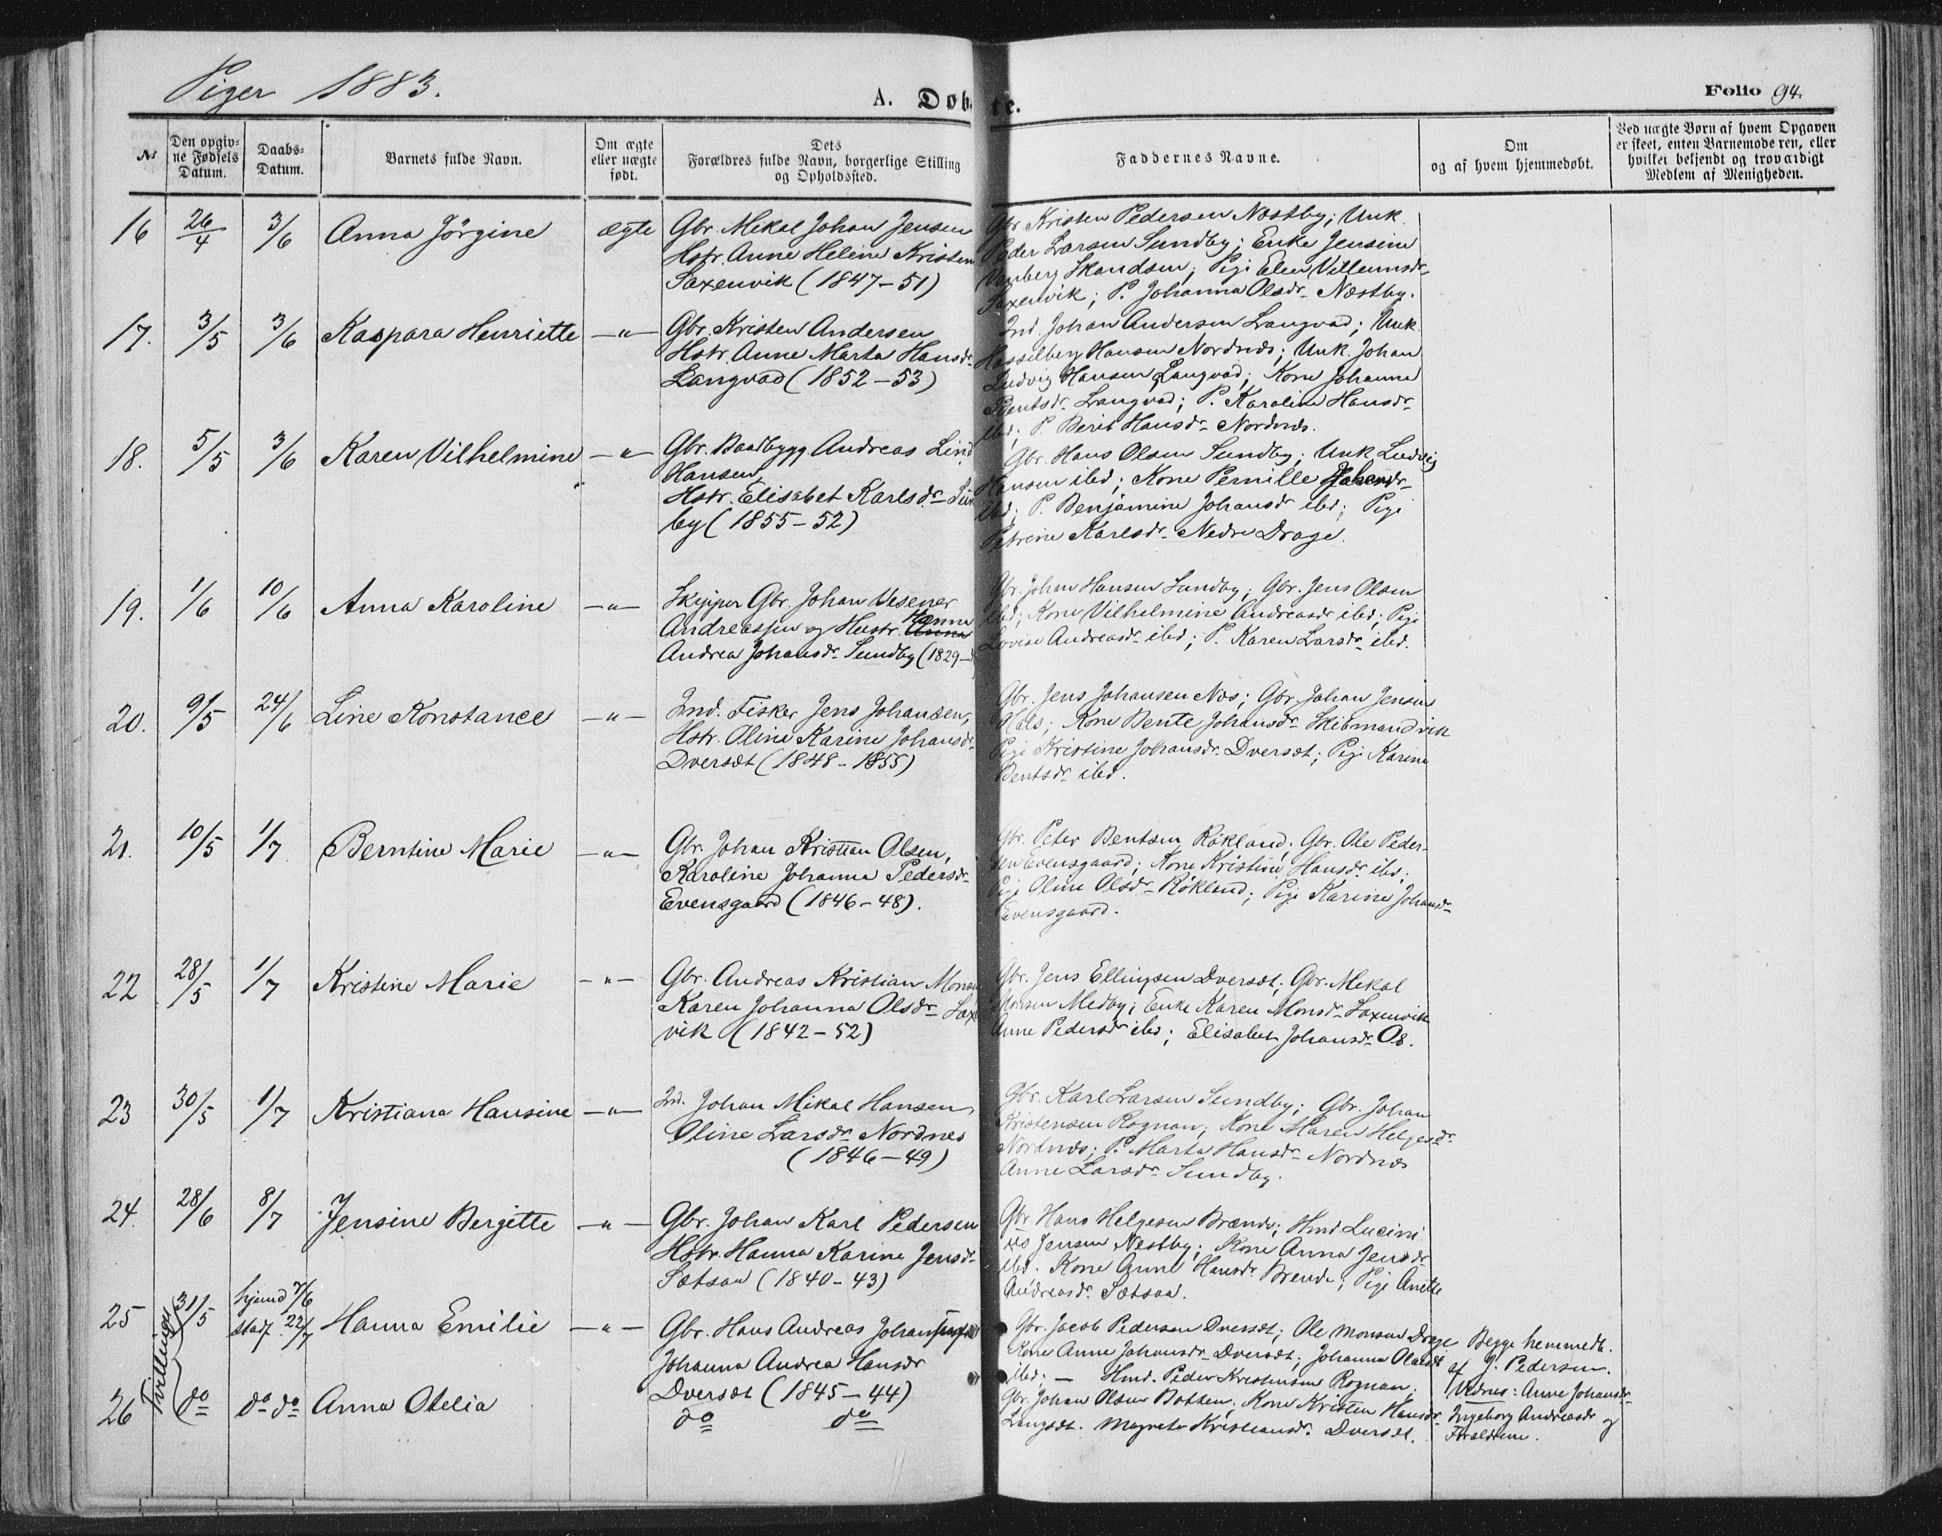 Piger 1883.
A. Døbte.
Folio 94.
No
Den opgiv-
ne Fødsels
Datum.
Daabs-
Datum.
Barnets fulde Navn.
Om ægte
eller uægte
født.
Dets
Forældres fulde Navn, borgerlige Stilling
og Opholdssted.
Faddernes Navne.
Om
og af hvem hjemmedøbt.
Ved uægte Børn af hvem Opgaven
er skeet, enten Barnemoderen, eller
hvilket bekjendt og troværdigt
Medlem af Menigheden.
16 26/4 3/6 Anna Jörgine ægte
Gbr. Mikal Johan Jensen
Hstr. Anne Helene Kristen
Saxenvik (1847-51)
Gbr Kristen Pedersen Næstby; Unk.
Peder Larsen Sundby; Enke Jensine
Skandsen; Pige Elen Villumsdr
Saxenvik; P. Johanna Olsdr Næstby.
17. 3/5 3/6 Kaspara Henriette -"-
Gbr. Kristen Andersen
Hstr. Anne Marta Hansdr
Langvad (1852-53)
Ind. Johan Andersen Langvad; Unk
Hasselberg Hansen Nordnæs; Unk. Johan
Ludvig Hansen Langvad; Kone Johanna
Bentsdr Langvad; P. Karoline Hansdr
ibd; P. Berit Hansdr Nordnæs.
18. 5/5 3/6 Karen Vilhelmine -"-
Gbr. Baadbygg. Andreas Lind
Hansen
Hstr. Elisabet Karlsdr Sun
by (1855-52)
Gbr. Hans Olsen Sundby; Unk Ludvig
Hansen ibd; Kone Pernille Johansdr
ibd; P. Benjamine Johansdr ibd; Pige
Petrine Karlsdr Nedre Drage.
19. 1/6 10/6 Anna Karoline -"-
Skipper Gbr. Johan Wesener
Andreassen og Hustr. Anna Hanna
Andrea Johansdr Sundby (1829-
Gbr. Johan Hansen Sundby; Gbr. Jens Olsen
ibd; Kone Vilhelmine Andreasdr ibd; Pige
Lovise Andreasdr ibd; P. Karen Larsdr ibd.
20. 9/5 24/6 Line Konstance -"-
Ind. Fisker Jens Johansen,
Hstr. Oline Karine Johansdr
Dverset (1848-1855)
Gbr. Jens Johansen Næs; Gbr. Johan Jensen
Hals; Kone Bente Johansdr Skibmandvik
Pige Kristine Johansdr Dverset; Pige Karine
Bentsdr ibd.
21. 10/5 1/7 Berntine Marie -"-
Gbr. Johan Kristian Olsen,
Karoline Johanna Pedersdr
Evensgaard (1846-48).
Gbr. Peter Bentsen Røkland; Gbr. Ole Peder-
sen Evensgaard; Kone Kristine Hansdr ibd;
Pige Oline Olsdr Røkland; Pige Karine Johansdr
Evensgaard.
22 28/5 1/7 Kristine Marie -"-
Gbr. Andreas Kristian Mons
Karen Johanna Olsdr Sax
vik (1842-52)
Gbr. Jens Ellingsen Dverset; Gbr. Mikal
Monsen Medby; Enke Karen Monsdr Saxenvik
Anne Pedersdr ibd; Elisabet Johansdr Os.
23 30/5 1/7 Kristiana Hansine -"-
Ind. Johan Mikal Hansen
Oline Larsdr Nordnes
(1846-49)
Gbr. Karl Larsen Sundby; Gbr. Johan
Kristensen Rognan; Kone Maren Helgesdr
Nordnæs; P. Marta Hansdr Nordnæs
Anne Larsdr Sundby.
24. 28/6 8/7 Jensine Bergitte -"-
Gbr. Johan Karl Pedersen
Hstr. Hanna Karine Jensdr
Sætsaa (1840-43)
Gbr Hans Helgesen Brænde; Hmd Lucini
us Jensen Nestby; Kone Anna Jensdr
ibd. Kone Anne Hansdr Brende; Pige Anette
Andreasdr Sætsaa.
Tvillinger
25 31/5 hjemd 7/6
stadf. 22/7 Hanna Emilie -"-
Gbr. Hans Andreas Johansen
Johanna Andrea Hansdr
Dverset (1845-44)
Gbr. Jacob Pedersen Dverset; Ole Monsen Drage
Kone Anne Johansdr Dverset; Johanna Olausdr
ibd; — Hmd. Peder Kristensen Rognan;
Begge hemmedt.
af J. Pedersen
Vidnes: Anne Johansdr
Ingeborg Andreasdr og
Forældrene.
26 do do do Anna Otelia
do do
Gbr. Johan Olsen Botten; Kone Kristen Hansdr
Langsdt. Magreta Kristiansdr Dverset.